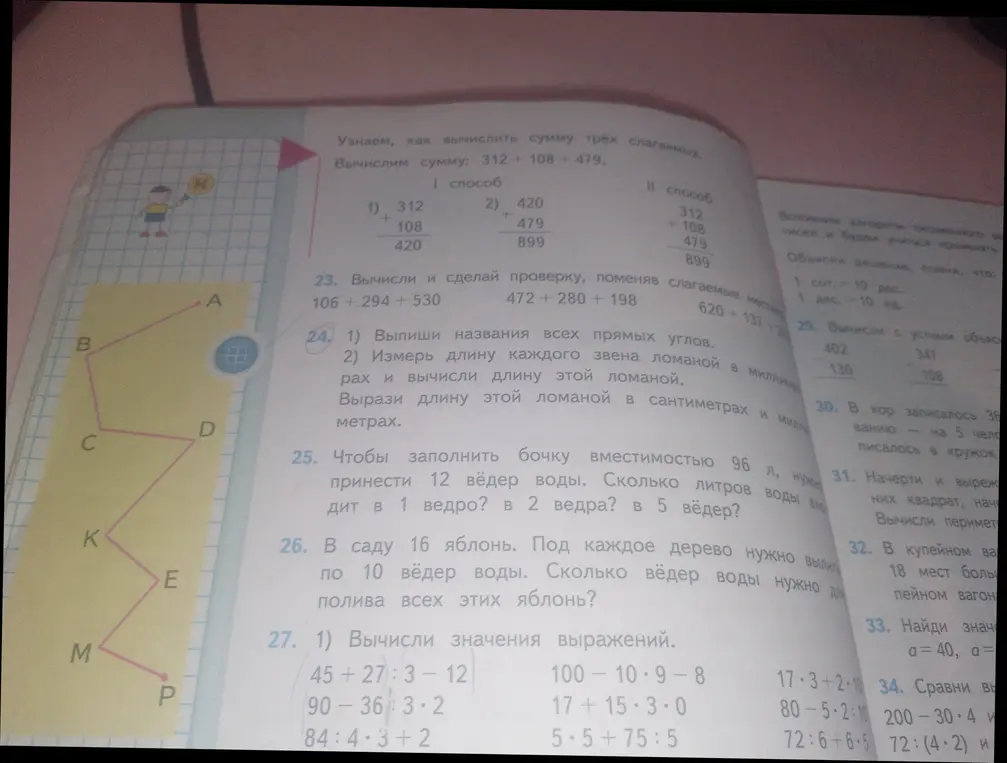 Н
Узнаем, как вычислить сумму трёх слагаемых.
Вычислим сумму: 312 + 108 + 479.
I способ
II способ
1) 312
+
108
420
2) 420
+
479
899
312
+ 108
479
899
23. Вычисли и сделай проверку, поменяв слагаемые
106 + 294 + 530
472 + 280 + 198
620 + 137 +
24. 1) Выпиши названия всех прямых углов.
2) Измерь длину каждого звена ломаной в миллиме
рах и вычисли длину этой ломаной.
Вырази длину этой ломаной в сантиметрах и милли
метрах.
25. Чтобы заполнить бочку вместимостью 96 л, нужно
принести 12 вёдер воды. Сколько литров воды
дит в 1 ведро? в 2 ведра? в 5 вёдер?
26. В саду 16 яблонь. Под каждое дерево нужно вылить
по 10 вёдер воды. Сколько вёдер воды нужно для
полива всех этих яблонь?
27. 1) Вычисли значения выражений.
45 + 27 : 3 − 12
100 − 10 · 9 − 8
17 · 3 + 2 · 10
90 − 36 : 3 · 2
17 + 15 · 3 · 0
80 − 5 · 2 : 10
84 : 4 · 3 + 2
5 · 5 + 75 : 5
72 : 6 + 6 · 5
A
B
C
D
K
E
M
P
Объясни решение,
1 сот. = 10 дес.
1 дес. = 10 ед.
29. Вычисли с устным объяс
402
130
347
108
30. В хор записалось 36
ванию — на 5 чел
писалось в кружок
31. Начерти и выреж
них квадрат, нач
Вычисли периметр
32. В купейном ва
18 мест боль
пейном вагон
33. Найди знач
a = 40, a =
34. Сравни вы
200 − 30 · 4 и
72 : (4 · 2) и